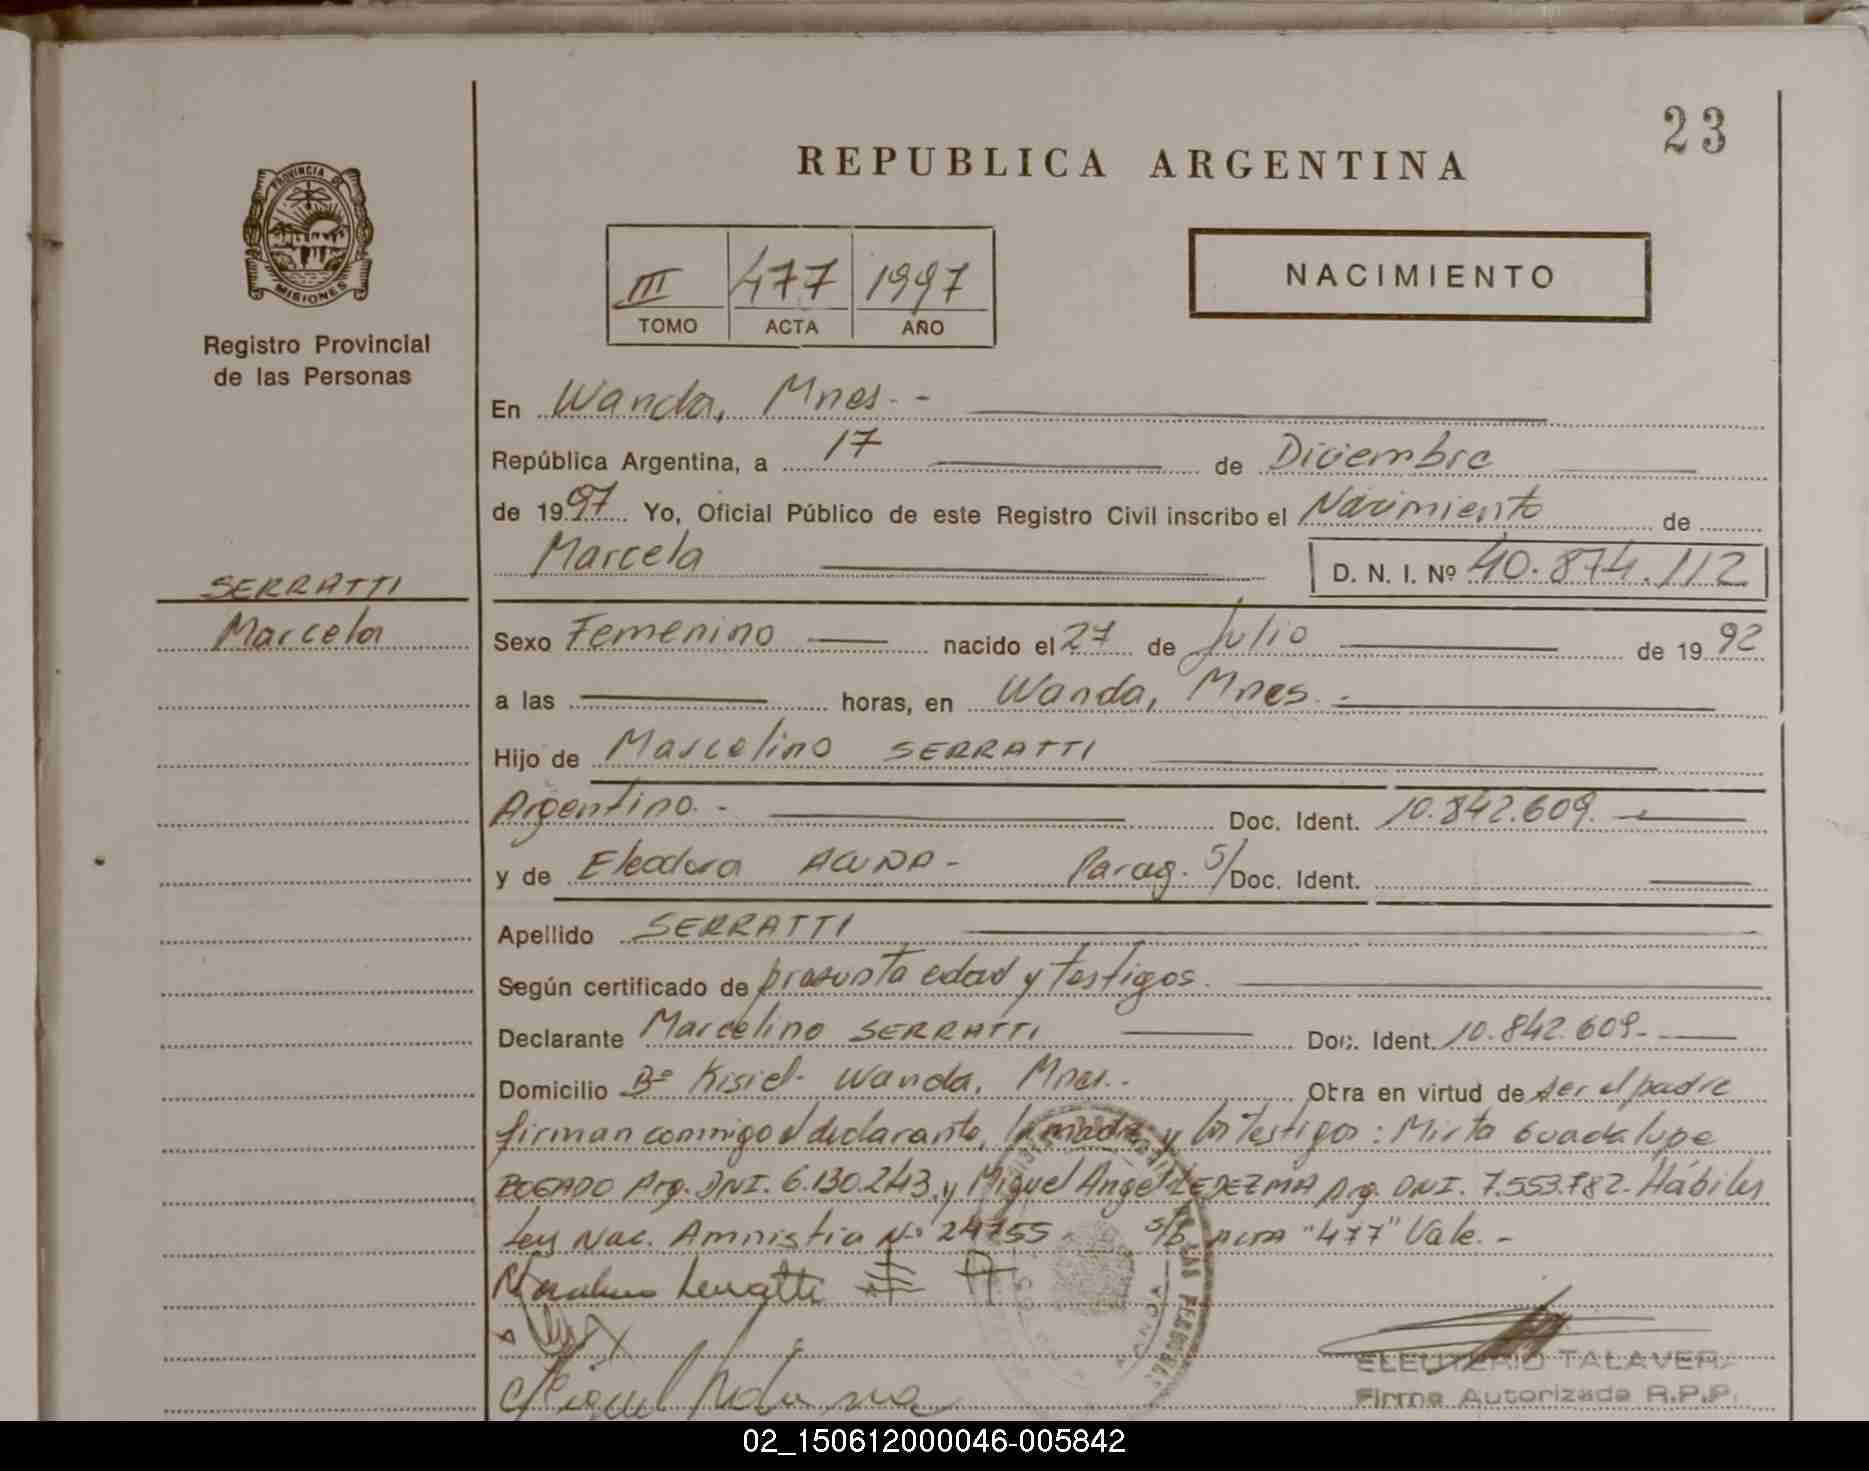 23
REPUBLICA ARGENTINA
PROVINCIA DE
MISIONES
Registro Provincial
de las Personas
III 477 1997
TOMO ACTA AÑO
NACIMIENTO
En Wanda, Mnes.-
República Argentina, a 17 de Diciembre
de 1997 Yo, Oficial Público de este Registro Civil inscribo el Nacimiento de
Marcela D. N. I. Nº 40.874.112
SERRATTI
Marcela
Sexo Femenino nacido el 27 de Julio de 1992
a las horas, en Wanda, Mnes.-
Hijo de Marcelino SERRATTI
Argentino.- Doc. Ident. 10.842.609.
y de Eleodora ACUÑA- Parag. S/Doc. Ident.
Apellido SERRATTI
Según certificado de presunta edad y testigos.
Declarante Marcelino SERRATTI Doc. Ident. 10.842.609-
Domicilio Bº Kisiel- Wanda, Mnes.- Obra en virtud de ser el padre
firman conmigo el declarante, la madre y los testigos: Mirta Guadalupe
BOGADO Arg. DNI. 6.130.243 y Miguel Angel LEDEZMA Arg. DNI. 7.553.782- Hábiles
Ley Nac. Amnistia Nº 24755 S/b ACTA "477" Vale.-
ELEUTERIO TALAVERA
Firma Autorizada R.P.P.
02_150612000046-005842